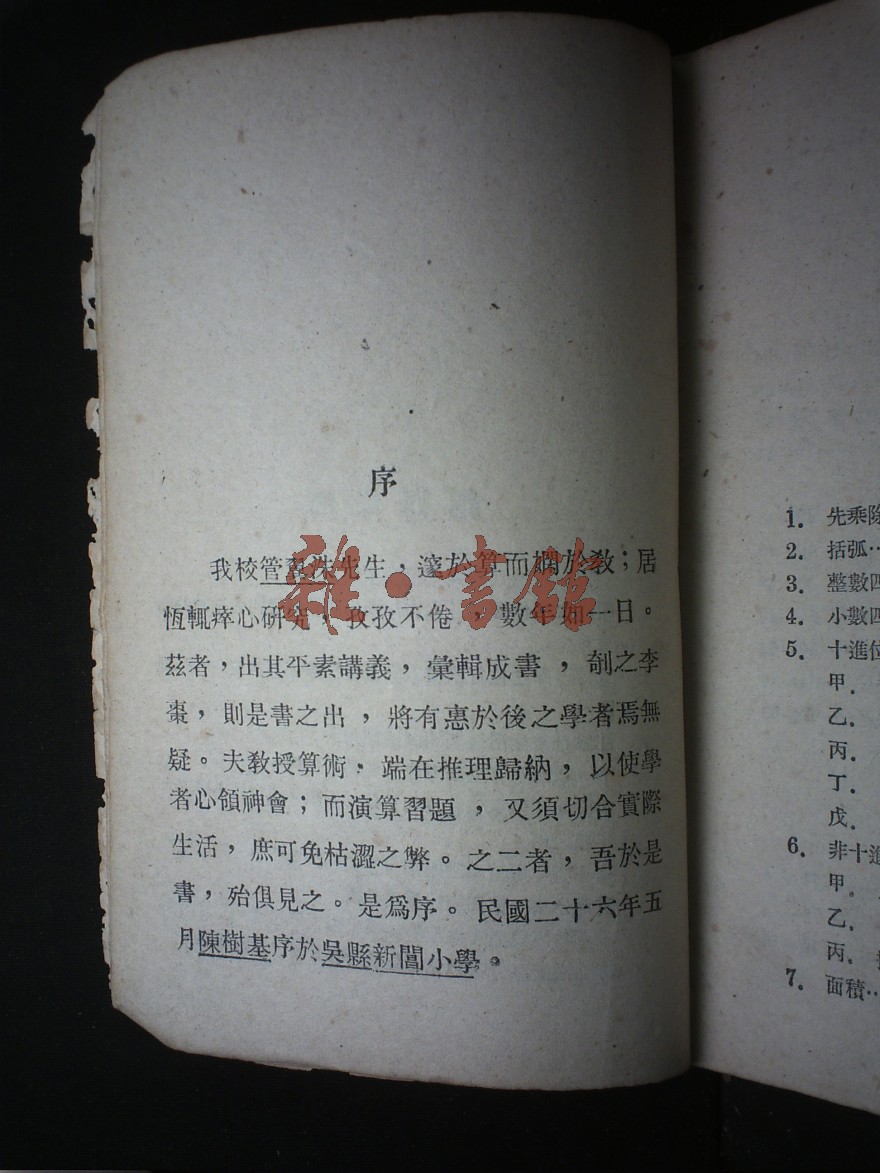 序
我校管先生，邃於算而嫻於敎；居
恆輒瘁心研究，孜孜不倦，數年如一日。
茲者，出其平素講義，彙輯成書，剞之李
棗，則是書之出，將有惠於後之學者焉無
疑。夫敎授算術，端在推理歸納，以使學
者心領神會；而演算習題，又須切合實際
生活，庶可免枯澀之弊。之二者，吾於是
書，殆俱見之。是爲序。民國二十六年五
月陳樹基序於吳縣新閶小學。
雜·書館
1. 先乘除
2. 括弧…
3. 整數四
4. 小數四
5. 十進位
甲．
乙．
丙．
丁．
戊．
6. 非十進
甲．
乙．
丙．
7. 面積…